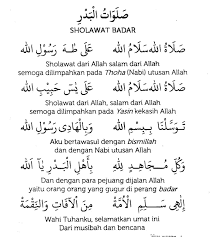 صَلَوَاتُ الْبَدْرِ
SHOLAWAT BADAR
صَلَاةُ اللهِ سَلَامُ اللهِ عَلَى طٰهَ رَسُوْلِ اللهِ
Sholawat dari Allah salam dari Allah
semoga dilimpahkan pada Thoha (Nabi) utusan Allah
صَلَاةُ اللهِ سَلَامُ اللهِ عَلَى يٰسٓ حَبِيْبِ اللهِ
Sholawat dari Allah salam dari Allah
semoga dilimpahkan pada Yasin kekasih Allah
تَوَسَّلْنَا بِبِسْمِ اللهِ وَبِالْهَادِى رَسُوْلِ اللهِ
Aku bertawasul dengan bismillah
dan dengan Nabi utusan Allah
وَكُلِّ مُجَاهِدٍ لِلهِ بِأَهْلِ الْبَدْرِ يَا اللهُ
Dan dengan para pejuang dijalan Allah
yaitu orang orang yang gugur di perang badar
إِلٰهِى سَلِّمِ الْأُمَّةْ مِنَ الْأٰفَاتِ وَالنِّقْمَةْ
Wahi Tuhanku, selamatkan umat ini
Dari musibah dan bencana